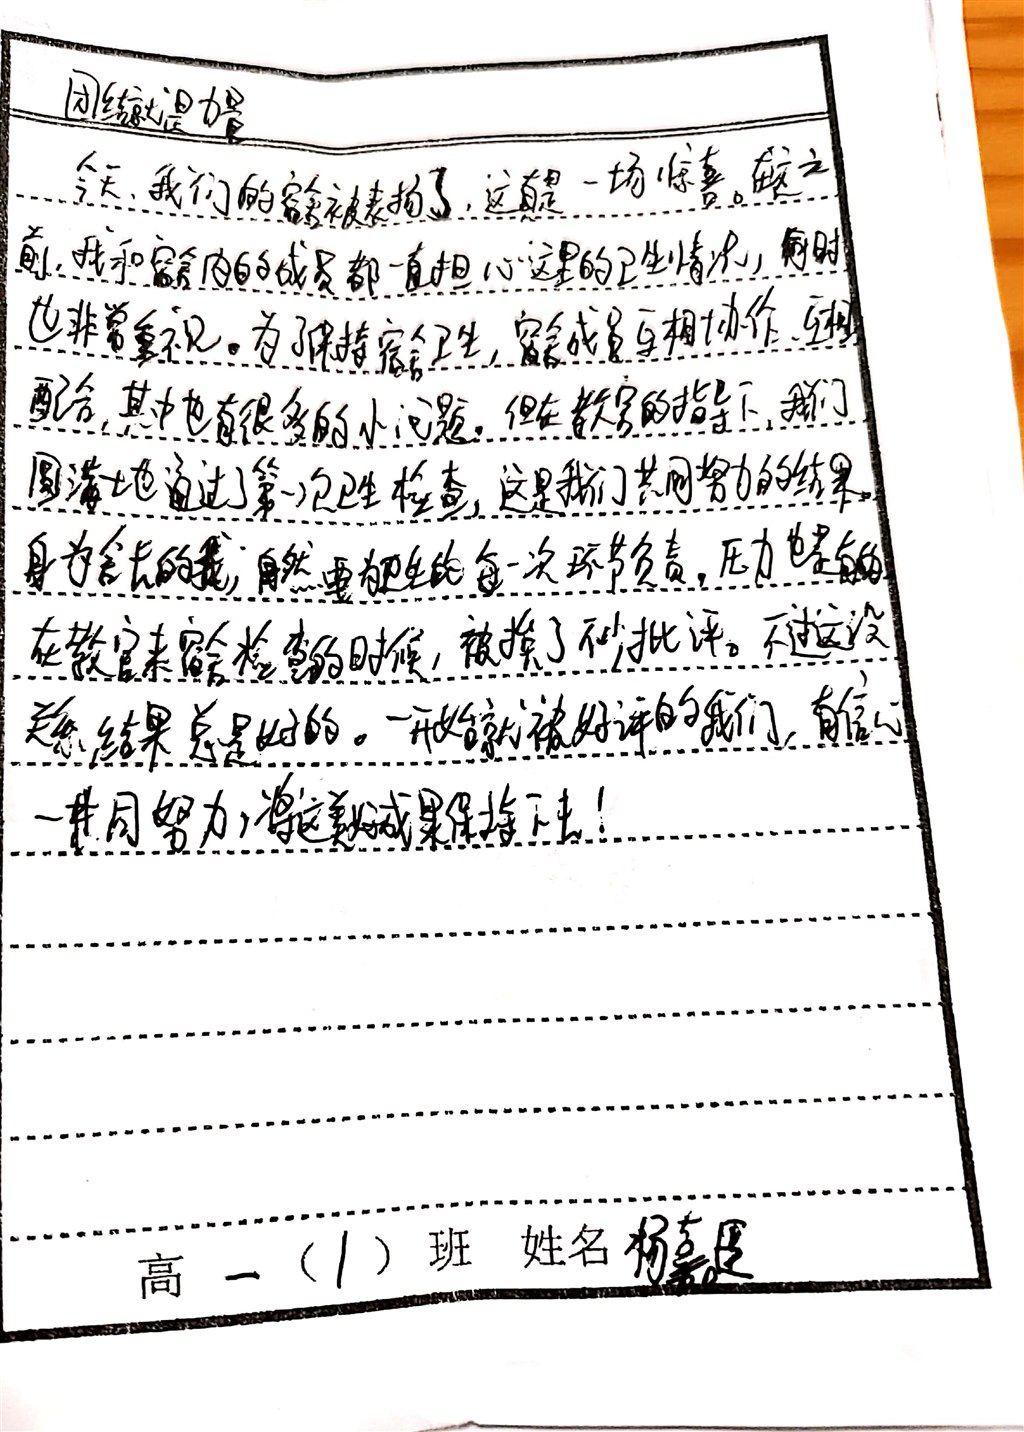 团结就是力量
今天,我们的宿舍被表扬了,这真是一场惊喜。在这之
前,我和宿舍内的成员都一直担心这里的卫生情况,同时
也非常重视。为了保持宿舍卫生,宿舍成员互相协作,互相
配合,其中也有很多的小问题。但在教官的指导下,我们
圆满地通过了第一次卫生检查,这是我们共同努力的结果。
身为舍长的我,自然要为卫生的每一次环节负责。压力也是有的
在教官来宿舍检查的时候,被挨了不少批评。不过这没
关系,结果总是好的。一开始就被好评的我们,有信心
一共同努力,将这美好成果保持下去!
高一(1)班 姓名 杨